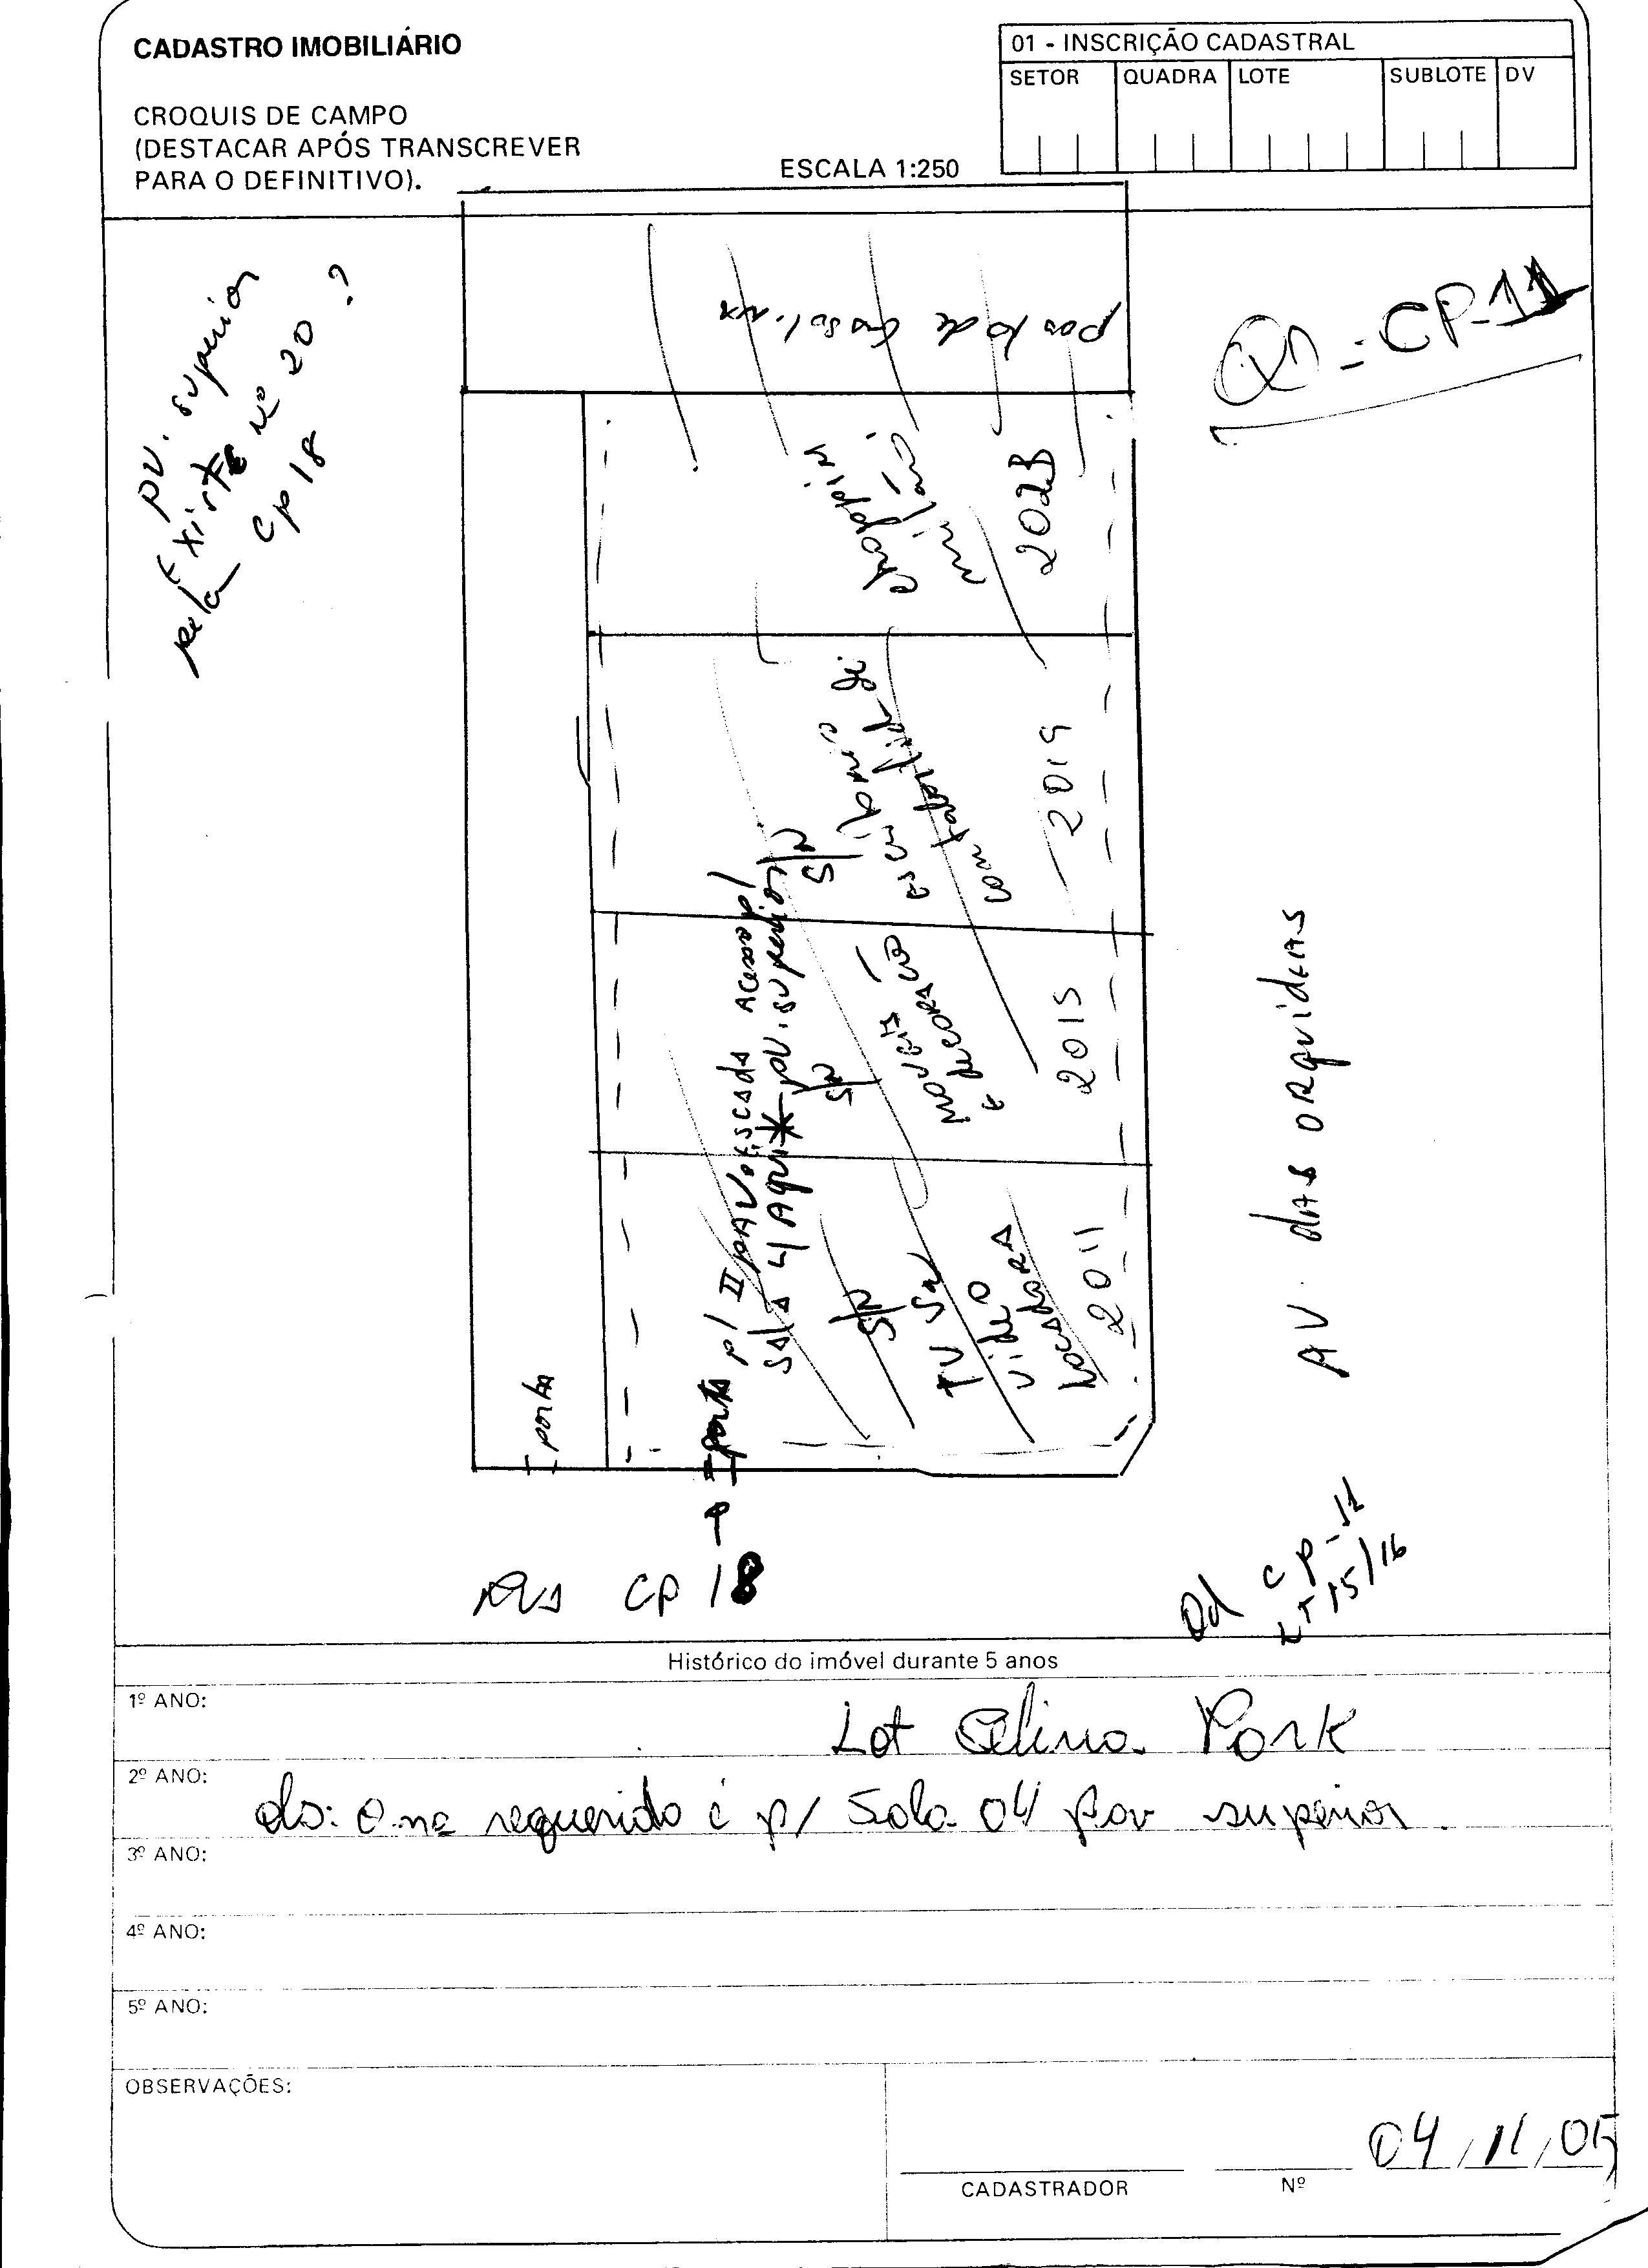 CADASTRO IMOBILIÁRIO
CROQUIS DE CAMPO
(DESTACAR APÓS TRANSCREVER
PARA O DEFINITIVO).
ESCALA 1:250
01 - INSCRIÇÃO CADASTRAL
SETOR QUADRA LOTE SUBLOTE DV
pv. superior
Existe nº 20 ?
pela cp 18
posto de
= CP-11
2023
escritorio de
contabilidade
S/N
2019
moveis
e decoração
S/N
2015
p/ II pAV. escada Acesso p/
sala 4/ Aqui pv. superior
S/N
TV
video
Locadora
2011
porta
porta
AV. dAS ORquideAS
RUA CP 18
Qd CP-11
LT 15/16
Histórico do imóvel durante 5 anos
1º ANO:
Lot Celina Park
2º ANO:
requerido é p/ Sala 04 pav superior.
3º ANO:
4º ANO:
5º ANO:
OBSERVAÇÕES:
04/11/05
CADASTRADOR
Nº